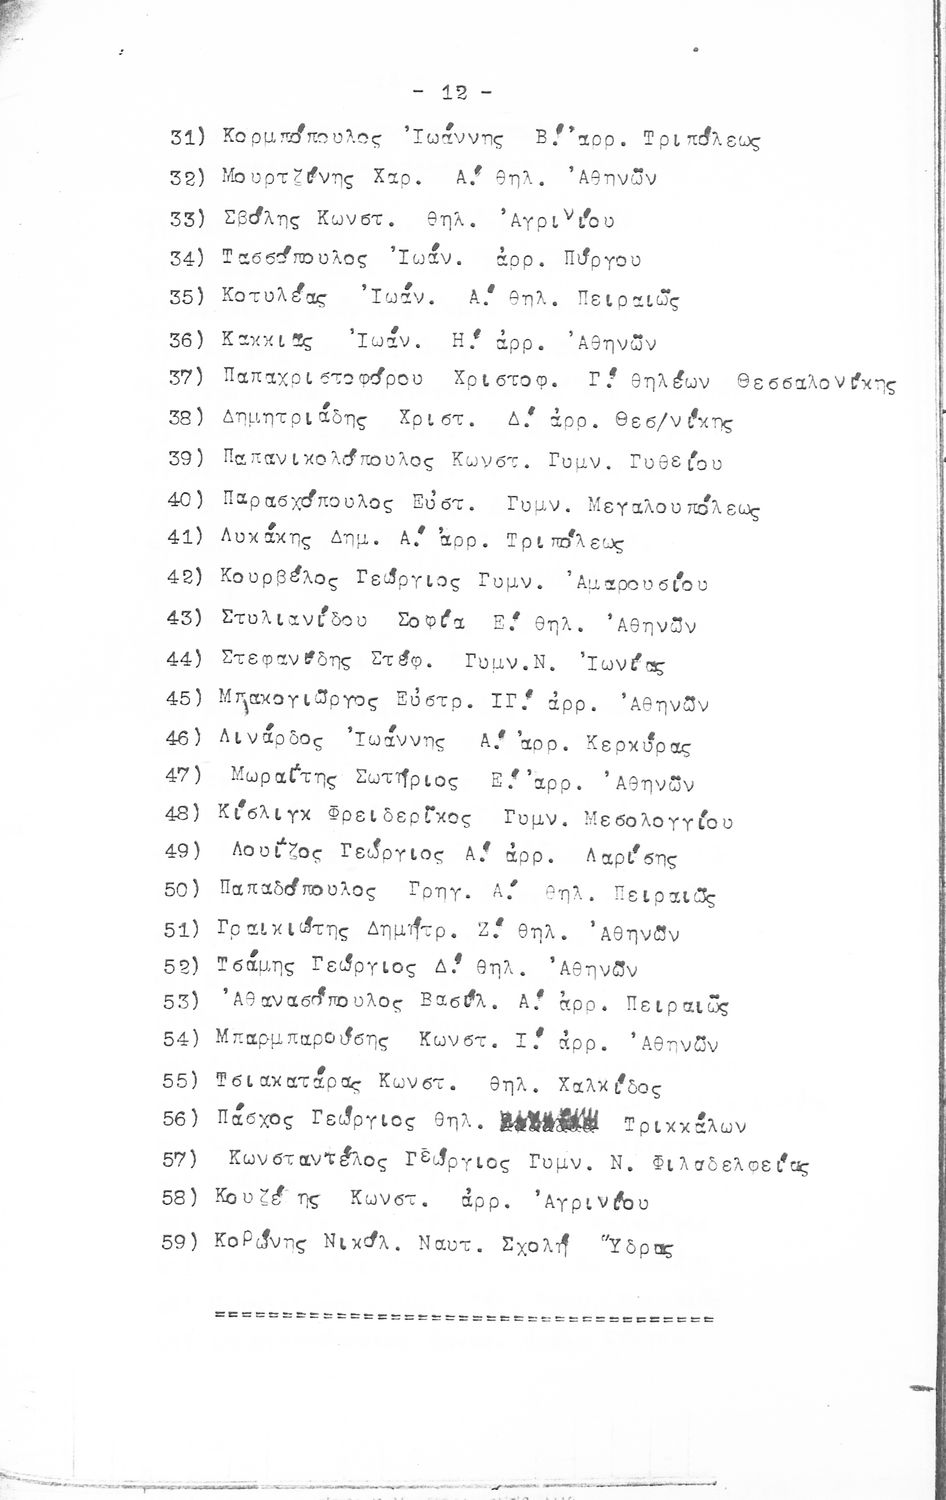 - 12 -
31) Κορμπόπουλος Ἰωάννης Β.' ἀρρ. Τριπόλεως
32) Μουρτζίνης Χαρ. Α.' θηλ. Ἀθηνῶν
33) Σβόλης Κωνστ. θηλ. Ἀγρινίου
34) Τασσόπουλος Ἰωάν. ἀρρ. Πύργου
35) Κοτυλέας Ἰωάν. Α.' θηλ. Πειραιῶς
36) Κακκιᾶς Ἰωάν. Η.' ἀρρ. Ἀθηνῶν
37) Παπαχριστοφόρου Χριστοφ. Γ.' θηλέων Θεσσαλονίκης
38) Δημητριάδης Χριστ. Δ.' ἀρρ. Θεσ/νίκης
39) Παπανικολόπουλος Κωνστ. Γυμν. Γυθείου
40) Παρασχόπουλος Εὐστ. Γυμν. Μεγαλουπόλεως
41) Λυκάκης Δημ. Α.' ἀρρ. Τριπόλεως
42) Κουρβέλος Γεώργιος Γυμν. Ἀμαρουσίου
43) Στυλιανίδου Σοφία Ε.' θηλ. Ἀθηνῶν
44) Στεφανίδης Στέφ. Γυμν.Ν. Ἰωνίας
45) Μπακογιῶργος Εὐστρ. ΙΓ.' ἀρρ. Ἀθηνῶν
46) Λινάρδος Ἰωάννης Α.' ἀρρ. Κερκύρας
47) Μωραΐτης Σωτήριος Ε.' ἀρρ. Ἀθηνῶν
48) Κίσλιγκ Φρειδερῖκος Γυμν. Μεσολογγίου
49) Λουΐζος Γεώργιος Α.' ἀρρ. Λαρίσης
50) Παπαδόπουλος Γρηγ. Α.' θηλ. Πειραιῶς
51) Γραικιώτης Δημήτρ. Ζ.' θηλ. Ἀθηνῶν
52) Τσάμης Γεώργιος Δ.' θηλ. Ἀθηνῶν
53) Ἀθανασόπουλος Βασίλ. Α.' ἀρρ. Πειραιῶς
54) Μπαρμπαρούσης Κωνστ. Ι.' ἀρρ. Ἀθηνῶν
55) Τσιακατάρας Κωνστ. θηλ. Χαλκίδος
56) Πάσχος Γεώργιος θηλ. Τρικκάλων
57) Κωνσταντέλος Γεώργιος Γυμν. Ν. Φιλαδελφείας
58) Κουζέ ης Κωνστ. ἀρρ. Ἀγρινίου
59) Κορώνης Νικόλ. Ναυτ. Σχολή Ὕδρας
=====================================